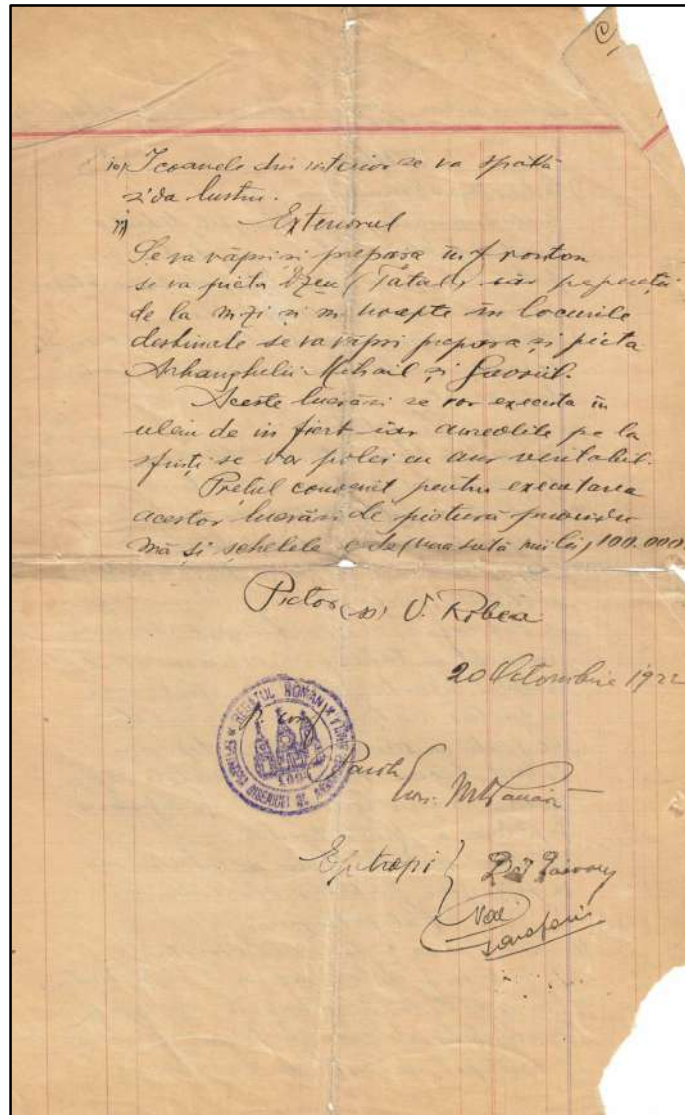 10) Icoanele din interior se va spăla
și da lustru.
11) Exteriorul
Se va văpsi și prepara în fronton
se va picta Dzeu (Tatăl) iar pe pereții
de la m zi și m noapte în locurile
destinate se va văpsi prepara și picta
Arhanghelii Mihail și Gavriil.
Aceste lucrări se vor executa în
uleiu de in fiert iar aureolile pe la
sfinți se vor polei cu aur veritabil.
Prețul convenit pentru executarea
acestor lucrări de pictură
mă și schelele e de (una sută mii lei) 100.000
Pictor (ss) V. Robea
20 Octombrie 1922
REGATUL ROMAN
p. conf.
Paroh
Econ.
Epitropi